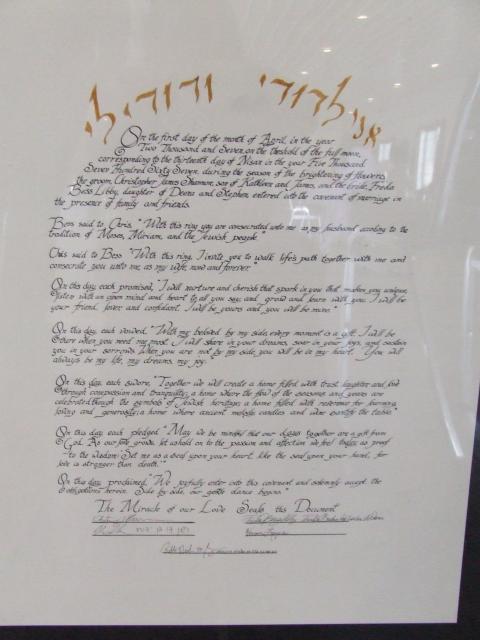 אני לדודי ודודי לי
On the first day of the month of April, in the year
Two Thousand and Seven, on the threshold of the full moon,
corresponding to the thirteenth day of Nisan in the year Five Thousand
Seven Hundred Sixty Seven, during the season of the brightening of flowers,
the groom, Christopher James Shannon, son of Kathleen and James, and the bride, Freda
Bess Libby, daughter of Deena and Stephen, entered into the covenant of marriage in
the presence of family and friends.
Bess said to Chris, "With this ring you are consecrated unto me as my husband according to the
tradition of Moses, Miriam, and the Jewish people."
Chris said to Bess "With this ring, I invite you to walk life's path together with me and
consecrate you unto me, as my wife, now and forever."
On this day each promised, "I will nurture and cherish that spark in you that makes you unique,
listen with an open mind and heart to all you say, and grow and learn with you. I will be
your friend, lover and confidant. I will be yours and you will be mine."
On this day each vowed, "With my beloved by my side, every moment is a gift. I will be
there when you need me most. I will share in your dreams, in your joys, and sustain
you in your sorrows. When you are not by my side, you will be in my heart. You will
always be my life, my dreams, my joy."
On this day each swore, "Together we will create a home filled with trust, laughter and love
through compassion and tranquility; a home where the flow of the seasons and years are
celebrated through the symbols of Jewish heritage; a home filled with reverence for learning,
loving and generosity; a home where ancient melody, candles and wine sanctify the table."
On this day each pledged "May we be mindful that our days together are a gift from
God. As our love grows, let us hold on to the passion and affection we feel today as proof
to the wisdom: Set me as a seal upon your heart, like the seal upon your hand, for
love is stronger than death."
On this day proclaimed, "We joyfully enter into this covenant and solemnly accept the
obligations herein. Side by side, our gentle dance begins."
The Miracle of our Love Seals this Document